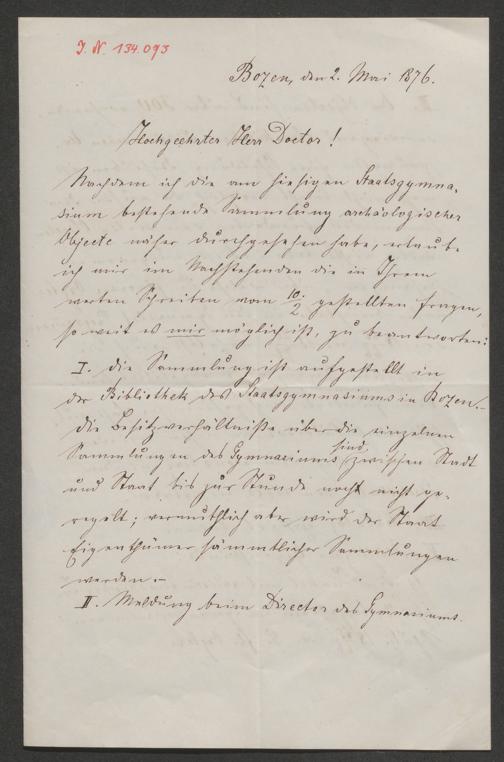 J. N. 134.093
Bozen, den 2. Mai 1876.
Hochgeehrter Herr Doctor!
Nachdem ich die am hiesigen Staatsgymna-
sium bestehende Sammlung archäologischer
Objecte näher durchgesehen habe, erlaube
ich mir im Nachstehenden die in Ihrem
werten Schreiben vom 10./2 gestellten Fragen,
so weit es mir möglich ist, zu beantworten:
I. Die Sammlung ist aufgestellt in
der Bibliothek des Staatsgymnasiums in Bozen.–
Die Besitzverhältniße über die einzelnen
Sammlungen des Gymnasiums sind zwischen Stadt
und Staat bis zur Stunde noch nicht ge-
regelt; vermuthlich aber wird der Staat
Eigenthümer sämmtlicher Sammlungen
werden.–
II. Meldung beim Director des Gymnasiums.